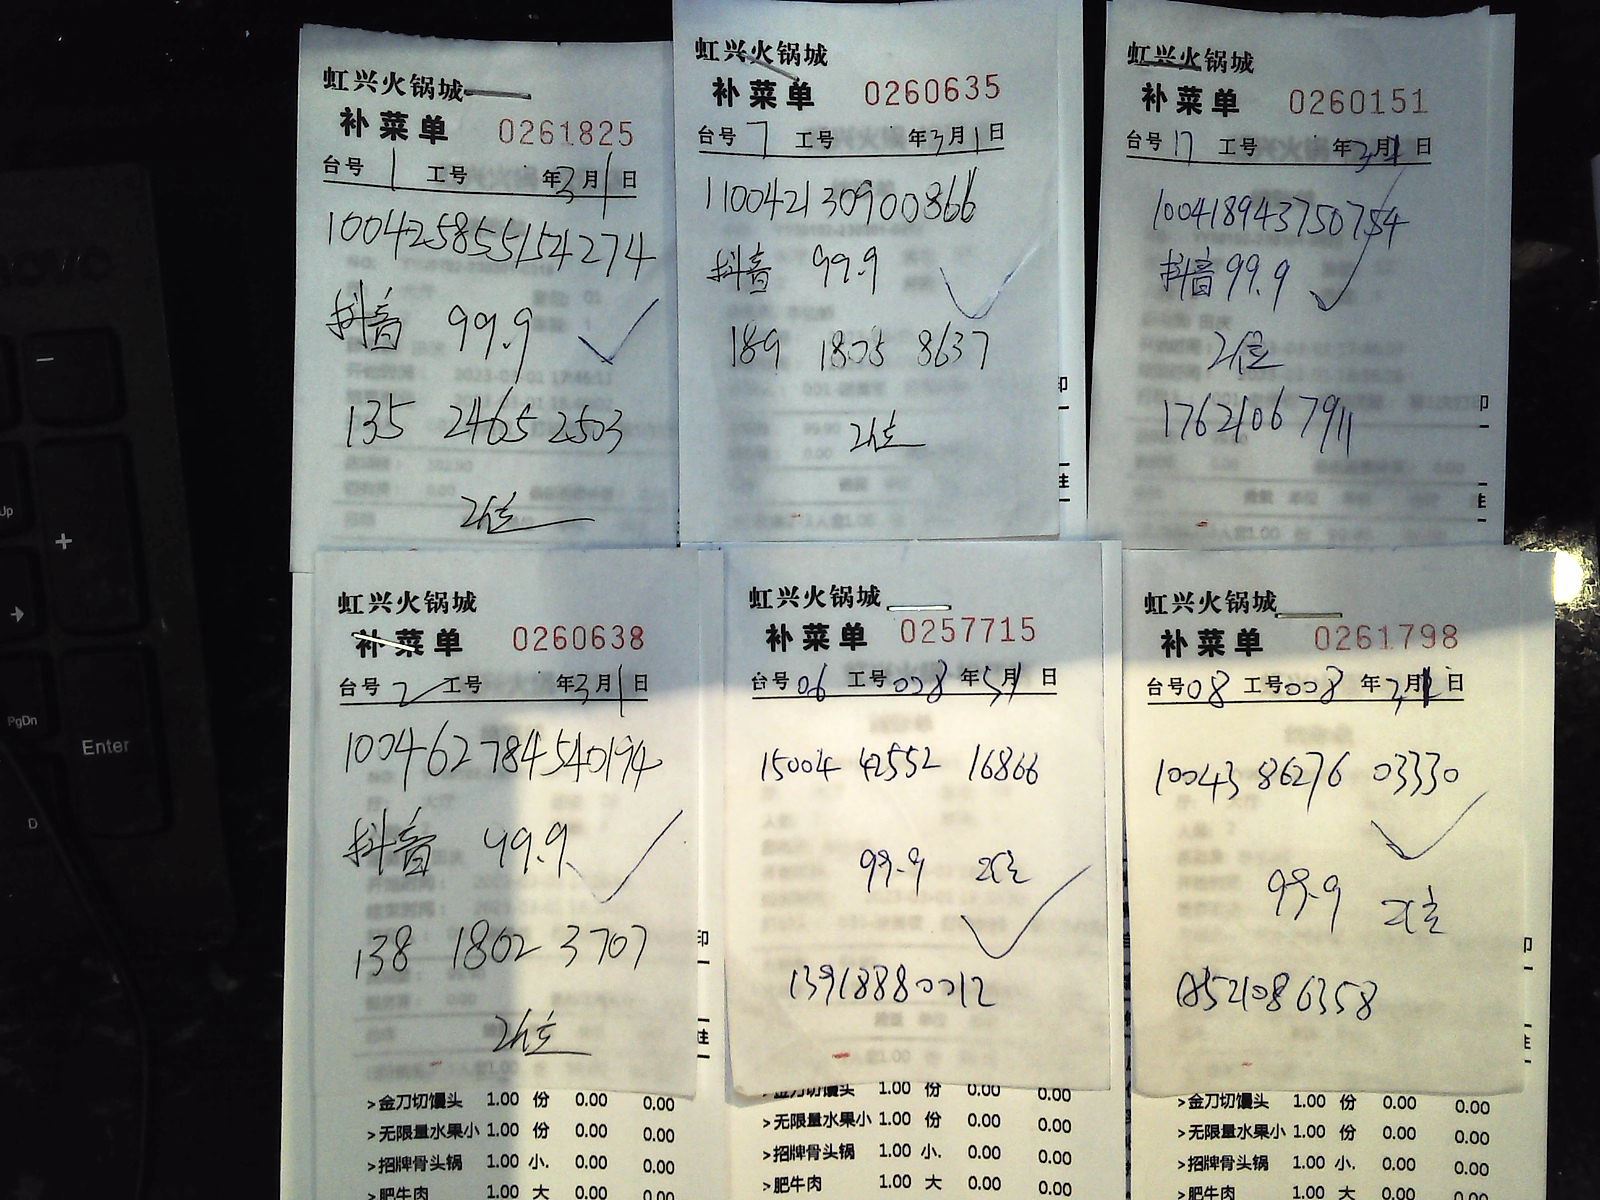 虹兴火锅城
补菜单 0261825
台号 1 工号 年3月1日
100425855154274
抖音 99.9
135 2465 2503
2位
虹兴火锅城
补菜单 0260635
台号 7 工号 年3月1日
110042130900866
抖音 99.9
189 1805 8637
2位
虹兴火锅城
补菜单 0260151
台号 17 工号 年3月1日
100418943750754
抖音 99.9
2位
17621067911
虹兴火锅城
补菜单 0260638
台号 2 工号 年3月1日
100462784540194
抖音 99.9
138 1802 3707
2位
虹兴火锅城
补菜单 0257715
台号 06 工号 008 年3月1日
15004 42552 16866
99.9 2位
13918880012
虹兴火锅城
补菜单 0261798
台号 08 工号 008 年3月1日
10043 86276 03330
99.9 2位
18521086358
>金刀切馒头 1.00 份 0.00 0.00
>无限量水果小 1.00 份 0.00 0.00
>招牌骨头锅 1.00 小. 0.00 0.00
>肥牛肉 1.00 大 0.00 0.00
>金刀切馒头 1.00 份 0.00 0.00
>无限量水果小 1.00 份 0.00 0.00
>招牌骨头锅 1.00 小. 0.00 0.00
>肥牛肉 1.00 大 0.00 0.00
>金刀切馒头 1.00 份 0.00 0.00
>无限量水果小 1.00 份 0.00 0.00
>招牌骨头锅 1.00 小. 0.00 0.00
>肥牛肉 1.00 大 0.00 0.00
PgDn
Enter